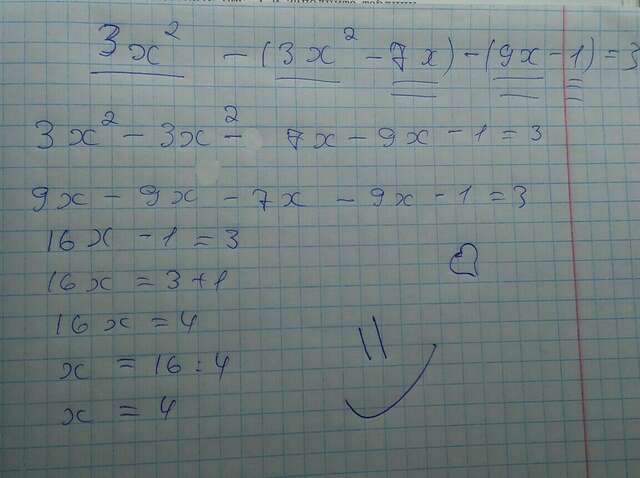 3x² - (3x² - 7x) - (9x - 1) = 3
3x² - 3x² - 7x - 9x - 1 = 3
9x - 9x - 7x - 9x - 1 = 3
16x - 1 = 3
16x = 3 + 1
16x = 4
x = 16 : 4
x = 4